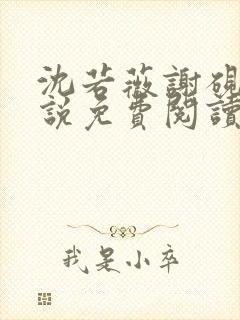 沈若薇謝硯
說免費閱讀
我是小卒